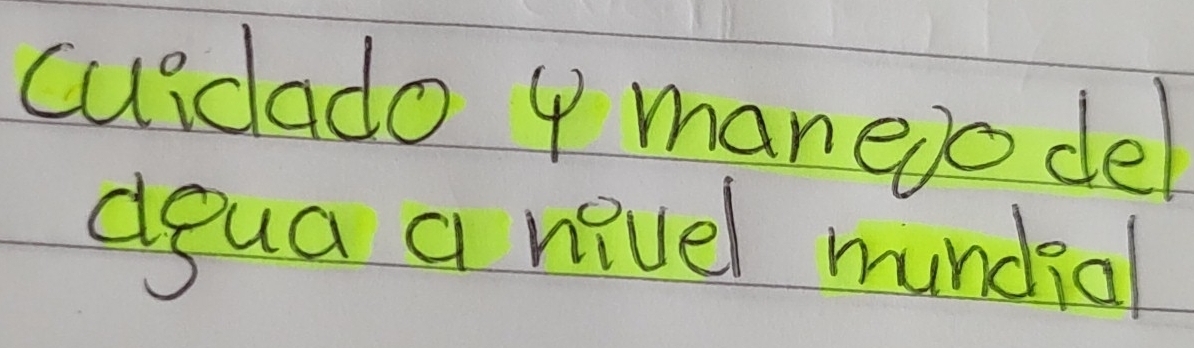 cuidado y manejo del
agua a nivel mundial